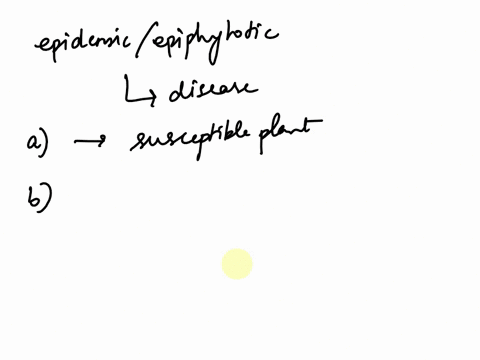 epidemic/epiphytotic
↳ disease
a) → susceptible plant
b)